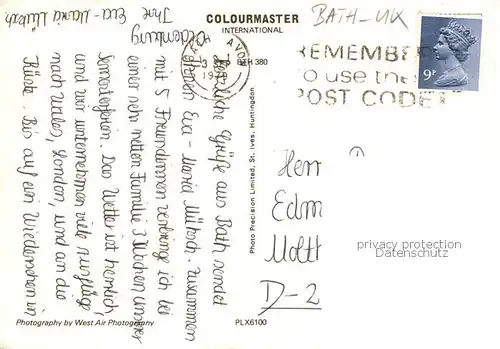 COLOURMASTER
INTERNATIONAL
BATH - UK
AVON
BTH 380
REMEMBER
to use the
POST CODE
9P
Herzliche Grüße aus Bath sendet
Ihnen Eva-Maria Mütsch. Zusammen
mit 5 Freundinnen verbring ich bei
einer sehr netten Familie 3 Wochen unserer
Semesterferien. Das Wetter ist herrlich,
und wir unternehmen viele Ausflüge
nach Wales, London, und an die
Küste. Bis auf ein Wiedersehen in
Oldenburg
Ihre Eva-Maria Mütsch
Photo Precision Limited, St. Ives, Huntingdon
Herr
Edm
Moltt
D-2
privacy protection
Datenschutz
Photography by West Air Photography
PLX6100